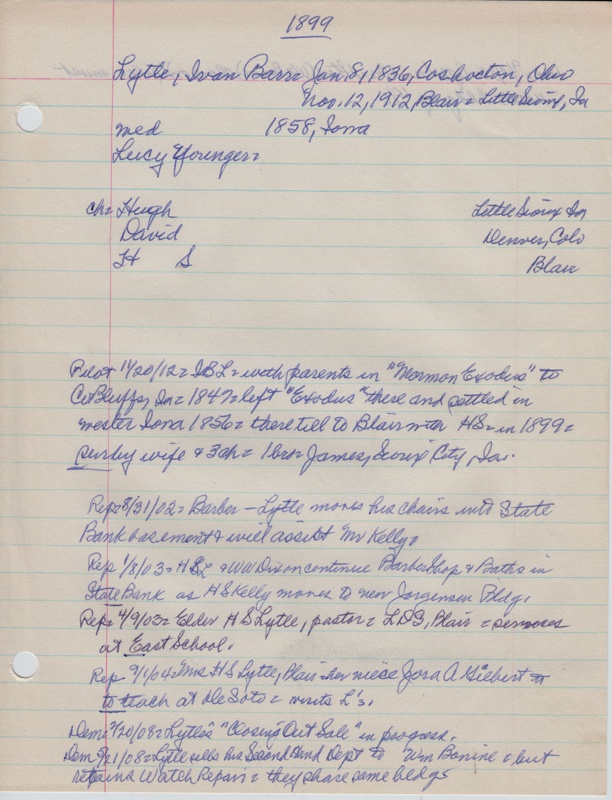 1899
Lytle, Ivan Barr = Jan. 8, 1836, Coshocton, Ohio
Nov. 12, 1912, Blair = Little Sioux, Ia
med 1858, Iowa
Lucy Younger =
ch = Hugh Little Sioux Ia
David Denver, Colo
H S Blair
Pilot 11/20/12 = IBL = with parents in "Mormon Exodus" to
Co Bluffs, Ia = 1847 = left "Exodus" there and settled in
wester Iowa 1856 = there till to Blair HS = in 1899 =
surv by wife & 3 ch = 1 bro = James, Sioux City, Ia.
Rep = 8/31/02 = Barber - Lytle moves his chairs into State
Bank basement & will assist Mr Kelly =
Rep 1/8/03 = HSL & WW Dixon continue Barber Shop & Baths in
State Bank as HS Kelly moves to new Jorgensen Bldg.
Rep = 4/9/03 = Elder HS Lytle, pastor = LDS, Blair = services
at East School.
Rep 9/1/04 = Mrs HS Lytle, Blair = her niece Zora A Gilbert =
to teach at De Soto = visits L's.
Dem = 7/20/08 = Lytle's "Closing Out Sale" in progress.
Dem = 9/21/08 = Lytle sells his Second Hand Dept to Wm Bonine = but
retains Watch Repair = they share same bldg =